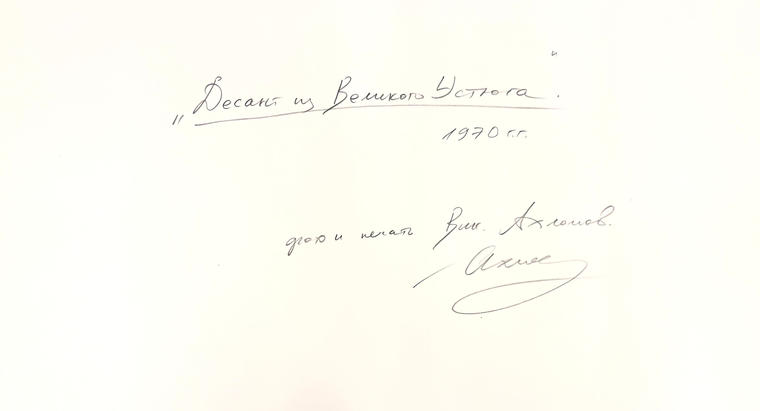 „Десант из Великого Устюга“.
1970 г.г.
фото и печать Вик. Ахломов.